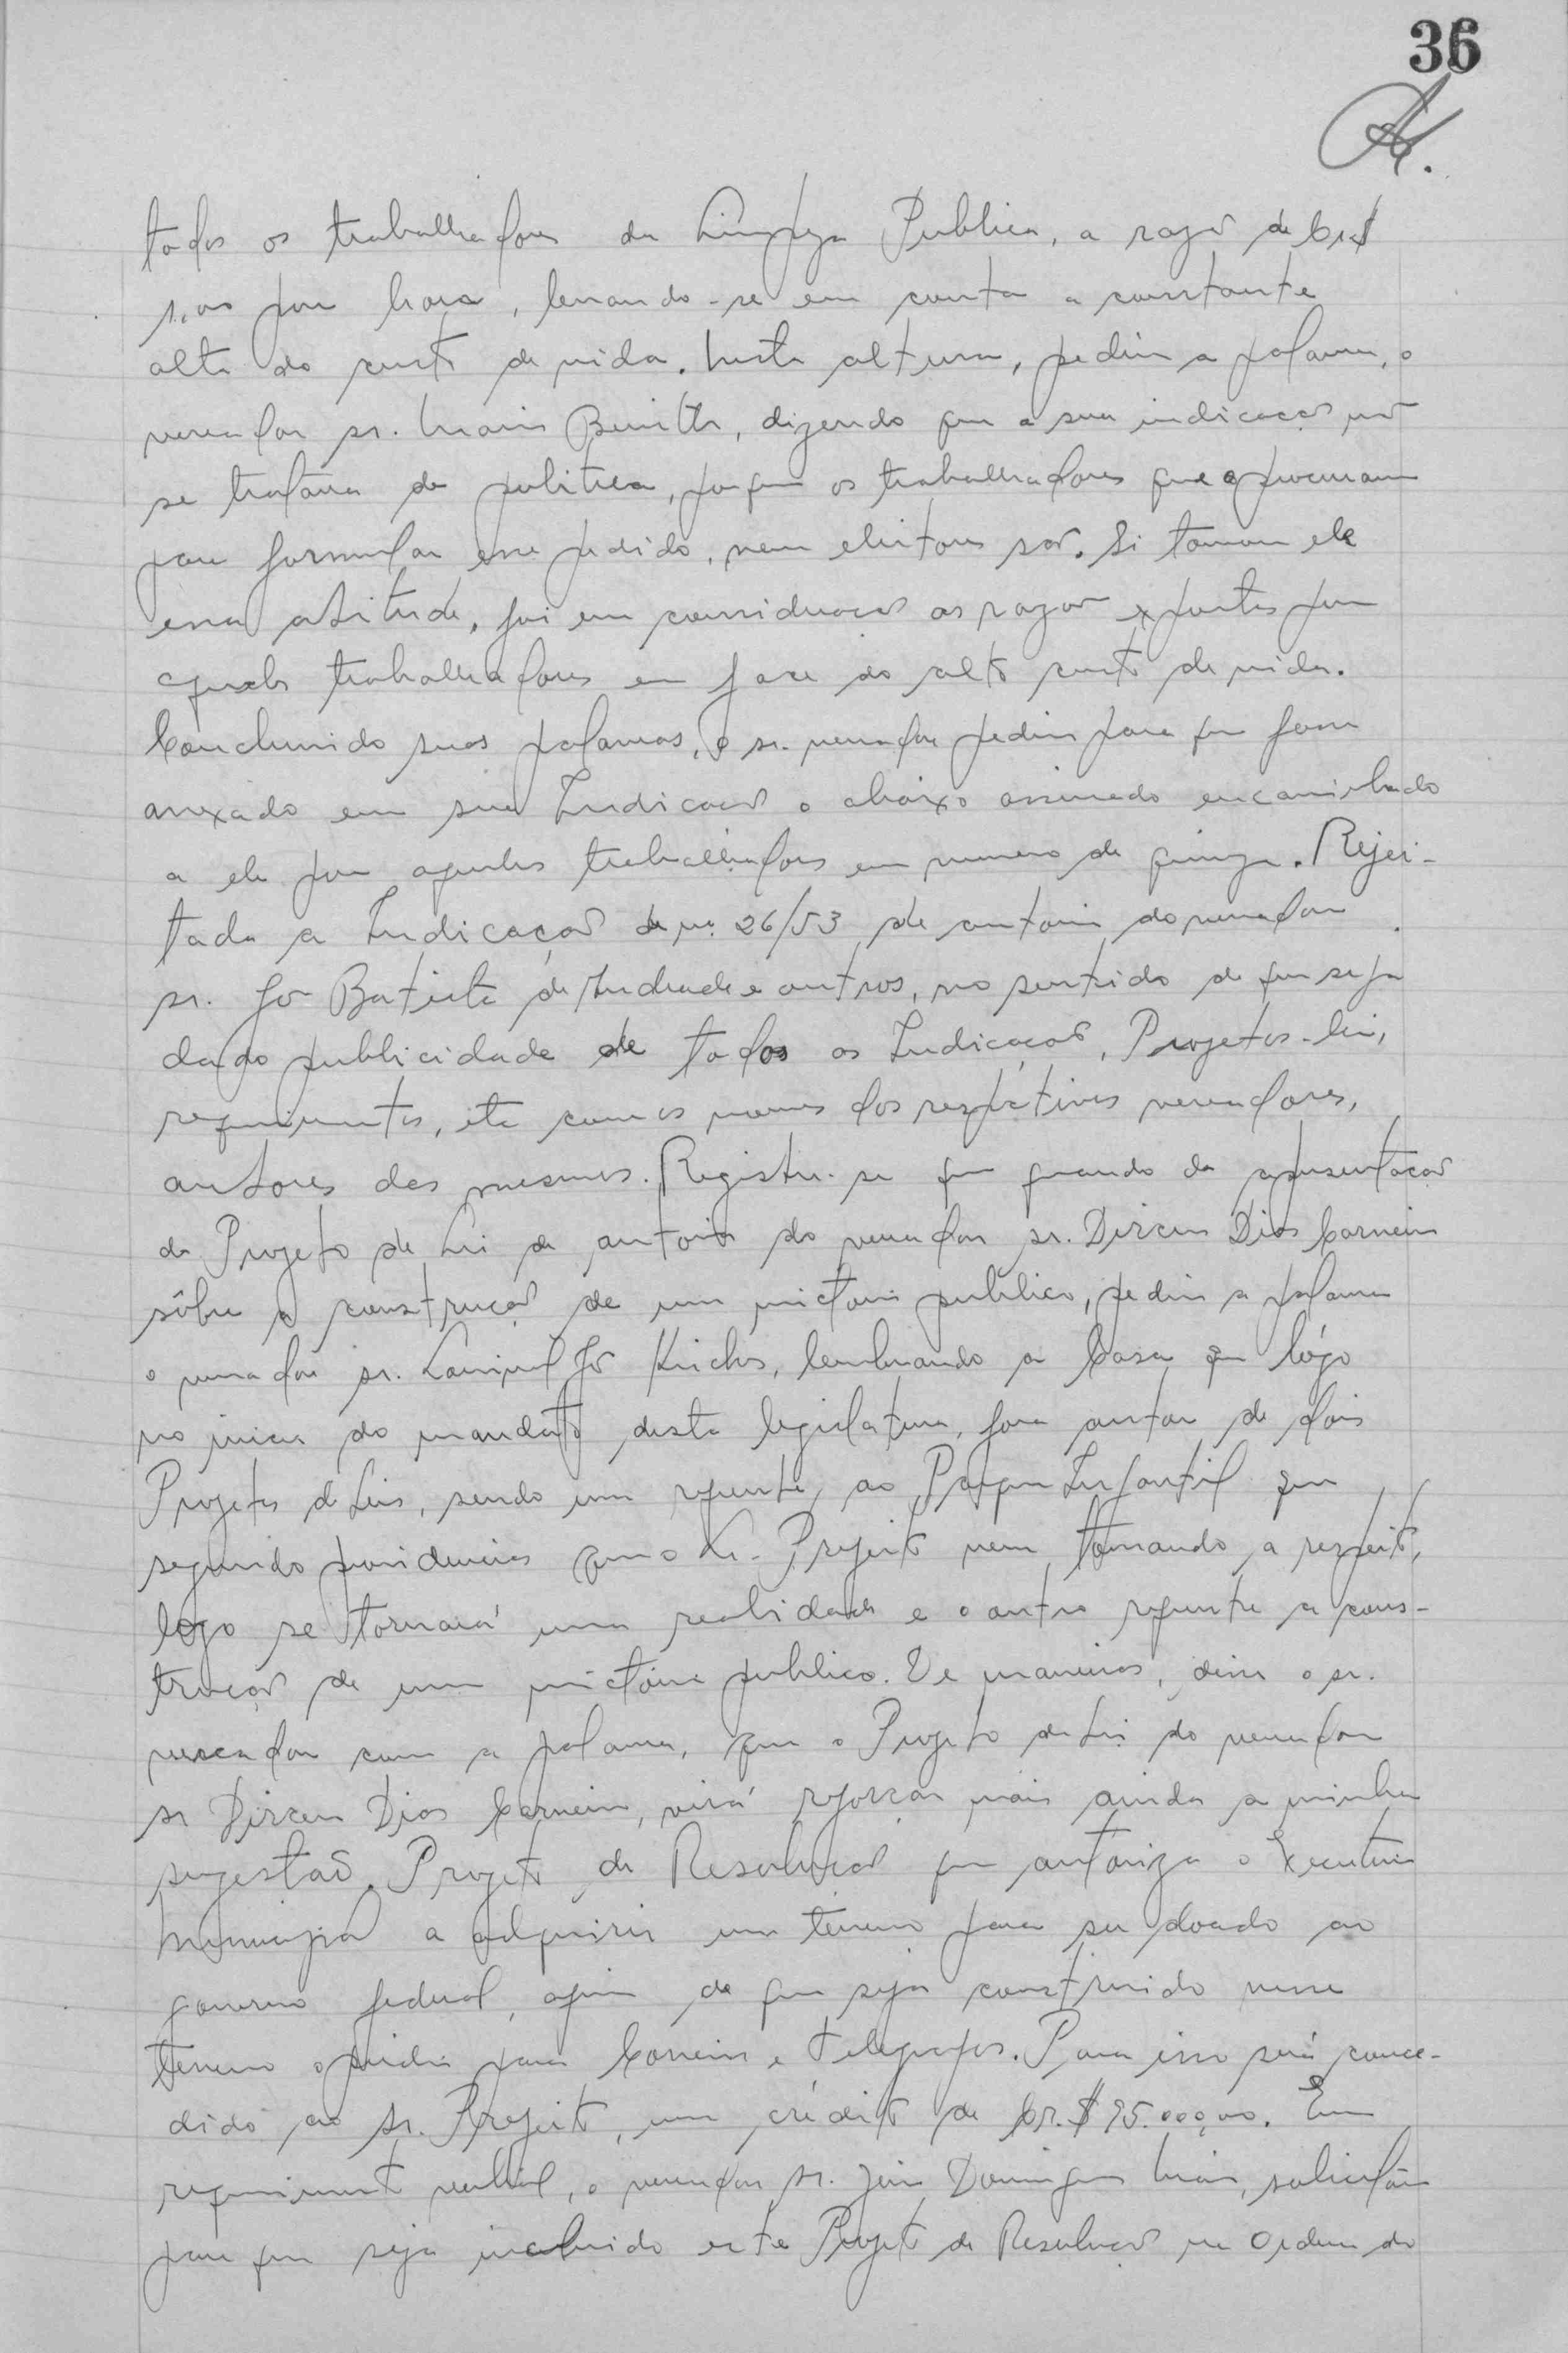 36
todos os trabalhadores da Limpeza Publica, a razão de Cr$
1,00 por hora, levando-se em conta a constante
alta do custo de vida. Nesta altura, pediu a palavra, o
vereador sr. Mario Benitti, dizendo que a sua indicação não
se tratava de politica, porque os trabalhadores que o procuraram
para formular esse pedido, nem eleitores são. Si tomou ele
essa atitude, foi em consideração as razões expostas por
aqueles trabalhadores em face do alto custo de vida.
Concluindo suas palavras, o sr. vereador pediu para que fosse
anexado em sua Indicação o abaixo assinado encaminhado
a ele por aqueles trabalhadores em numero de quinze. Rejei-
tada a Indicação de nº 26/53 de autoria do vereador
sr. José Batista de Andrade e outros, no sentido de que seja
dado publicidade de todos os Indicação, Projetos-lei,
requerimentos, etc com os nomes dos respétivos vereadores,
autores dos mesmos. Registre-se que quando da apresentação
do Projeto de Lei de autoria do vereador sr. Dirceu Dias Carneiro
sôbre a construção de um mictorio publico, pediu a palavra
o vereador sr. José lembrando a Casa que lógo
no inicio do mandato desta legislatura, fora autor de dois
Projetos de Leis, sendo um referente ao Parque Infantil que
segundo providencias que o Sr. Prefeito vem tomando a respeito,
logo se tornará uma realidade e o outro referente a cons-
trução de um mictório publico. De maneiras, disse o sr.
vereador com a palavra, que o Projeto de Lei do vereador
sr Dirceu Dias Carneiro, virá reforçar mais ainda a minha
sugestão. Projeto de Resolução que autoriza o Executivo
Municipal a adquirir um terreno para ser doado ao
governo federal, afim de que seja construido nesse
terreno o prédio para Correios e Telegrafos. Para isso será conce-
dido ao Sr. Prefeito, um crédito de Cr.$ 95.000,00. Em
requerimento verbal, o vereador sr. Domingues solicitou
para que seja incluido este Projeto de Resolução na Ordem do